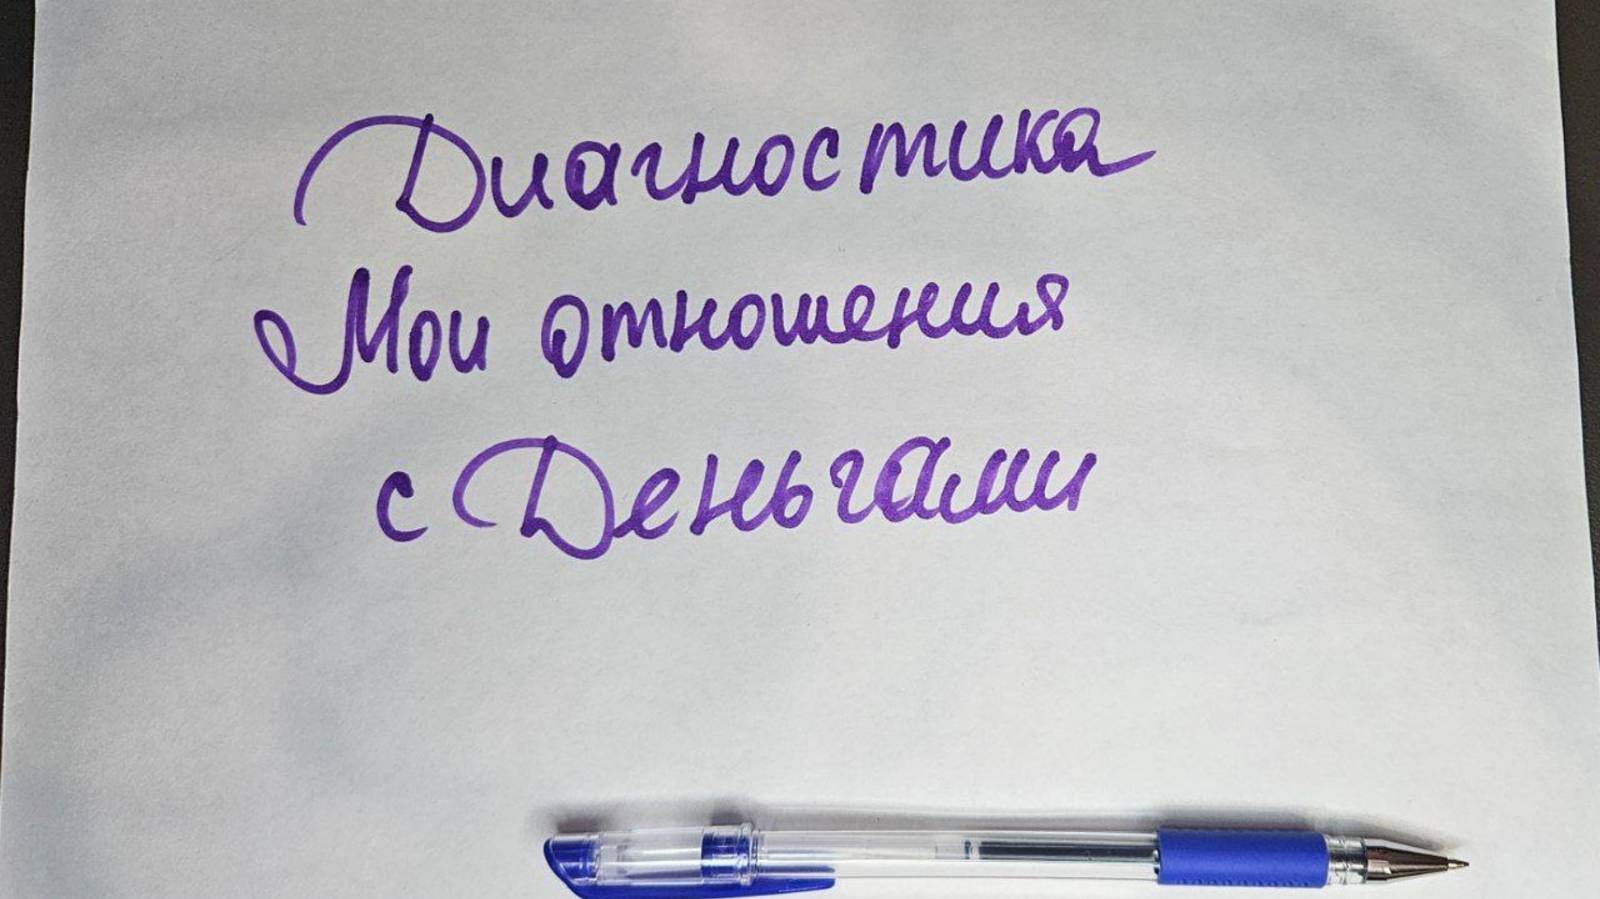 Диагностика
Мои отношения
с Деньгами